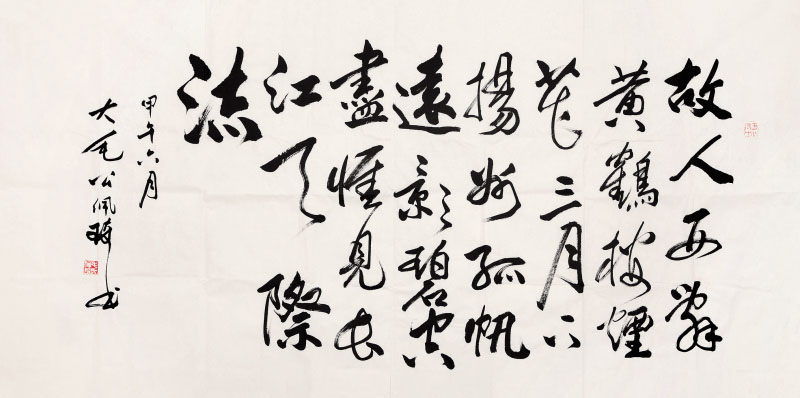 故人西辭
黄鶴楼煙
花三月下
揚州孤帆
遠影碧空
盡惟見長
江天際
流
甲午六月
大毛公佩琦书